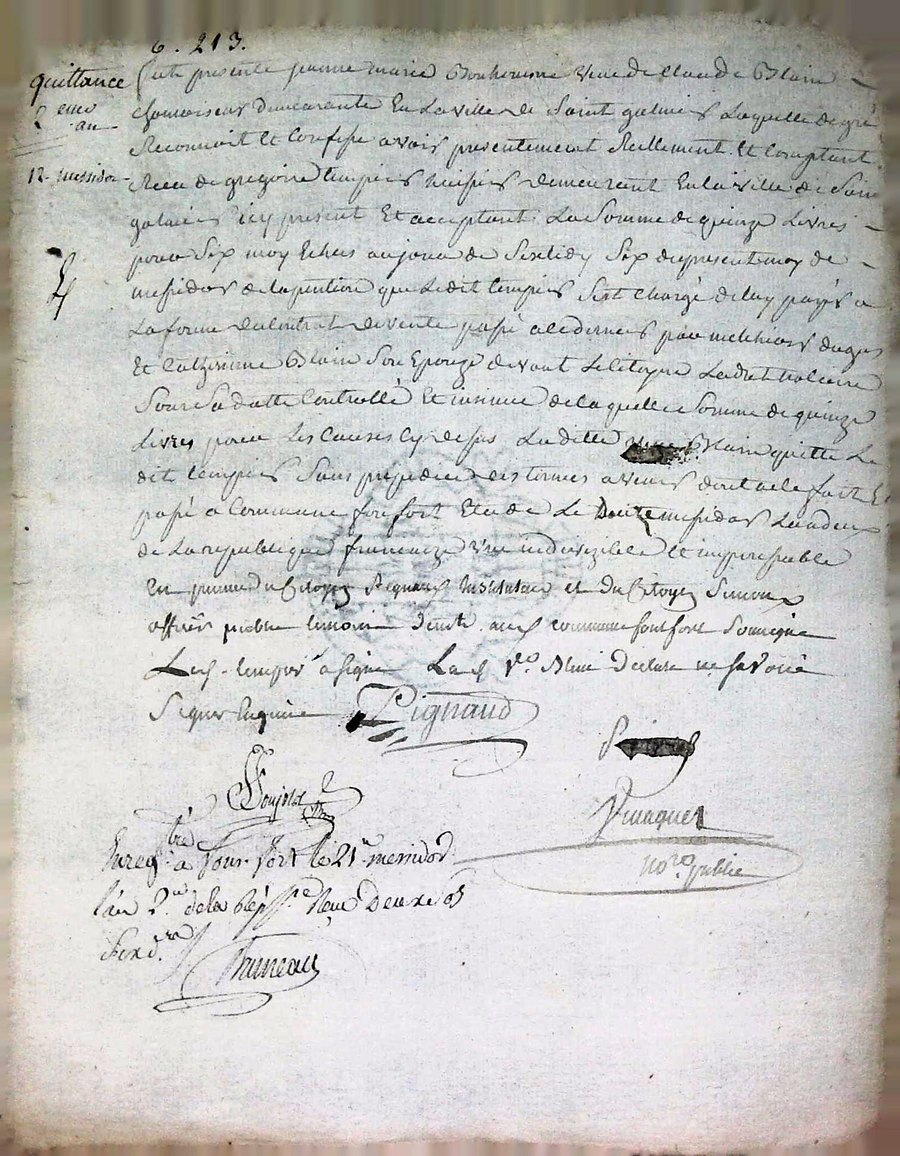 6. 213.
quittance
2 eme
an
12 messidor
fut presente jeanne marie Bonhomme veuve de Claude Blain
chamoiseur demeurante En La ville de Saint galmier Laquelle de gré
Reconnoit Et Confesse avoir presentement Reellement Et Comptant
Receu de gregoire tempier huissier demeurant En la ville de Saint
galmier icy present Et acceptant La Somme de quinze Livres
pour Six moy Echus au jour de Sextidy Six du present moy de
messidor de la pention que Ledit tempier Est Chargé de luy payer a
La forme du Contrat de vente passé a ce dernier par melchior
Et Catherine Blain Son Epouze devant Le Citoyen notaire
Sous Sa datte Controllé Et insinué de laquelle Somme de quinze
Livres pour Les Causes Cy dessus Laditte Blain quitte Le
dit tempier Sans prejudice des termes a venir dont acte fait Et
passé a Commune fonfort Etude Le Douze messidor L'an deux
de La republique francaize une indivizible Et imperissable
En presence du Citoyen Pignaud instituteur et du Citoyen Simon
officier public temoins dudit commune fontfort Soussigné
Led. tempier a signé La d. ve. Blain Declare ne savoir
Signer Enquise Pignaud
no.re public
Enreg.tré a fonfort le 21e messidor
l'an 2.me de la Rép. Reçu Deux
Bruneau